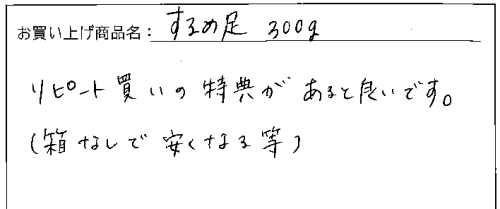 お買い上げ商品名：するめ足 300g
リピート買いの特典が あると良いです。
(箱なしで 安くなる等)